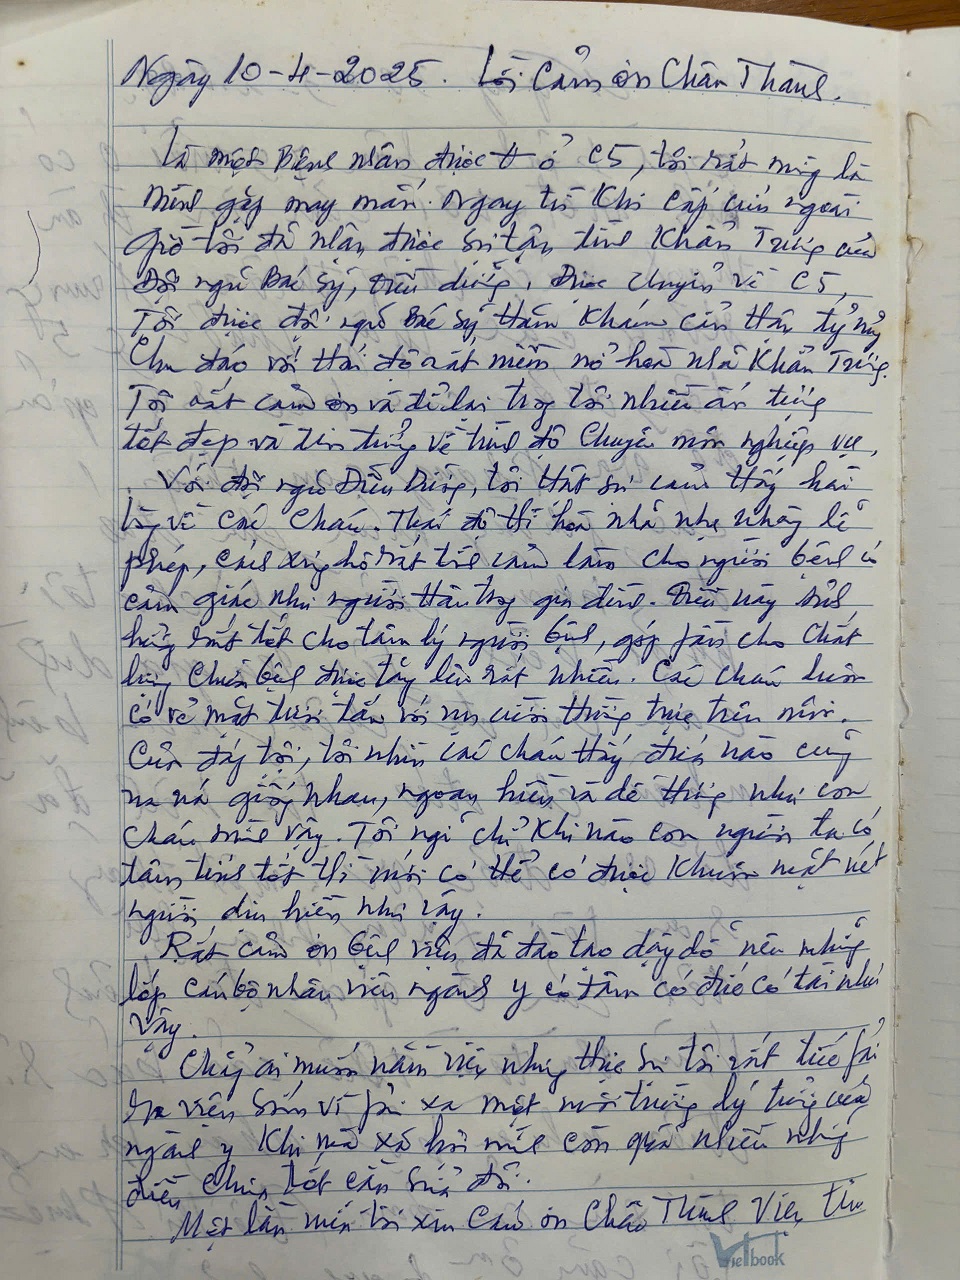 Ngày 10-4-2025. Lời Cảm ơn Chân Thành.
Là một Bệnh nhân được ở C5, tôi rất mừng là
mình gặp may mắn. Ngay từ Khi cấp cứu ngoài
giờ tôi đã nhận được sự tận tình Khẩn Trương của
Đội ngũ Bác Sỹ, điều dưỡng, Được chuyển về C5,
Tôi được đội ngũ Bác Sỹ thăm Khám cẩn thận tỷ mỷ
Chu đáo với thái độ rất niềm nở hoà nhã Khẩn Trương.
Tôi rất cảm ơn và để lại trong tôi nhiều ấn tượng
tốt đẹp và tin tưởng về trình độ Chuyên môn nghiệp vụ,
Với đội ngũ Điều Dưỡng, tôi thật sự cảm thấy hài
lòng về Các Cháu. Thái độ thì hoà nhã nhẹ nhàng lễ
phép, cách xưng hô rất tình cảm làm cho người bệnh có
cảm giác như người thân trong gia đình. Điều này ảnh
hưởng rất tốt cho tâm lý người bệnh, góp fần cho chất
lượng Chữa bệnh được tăng lên rất nhiều. Các cháu luôn
có vẻ mặt tươi tắn với nụ cười thường trực trên môi.
tôi, tôi nhìn các cháu thấy đứa nào cũng
na ná giống nhau, ngoan hiền và dễ thương như con
cháu mình vậy. Tôi nghĩ chỉ Khi nào con người ta có
tâm tính tốt thì mới có thể có được Khuôn mặt nét
người dịu hiền như vậy.
Rất cảm ơn bệnh viện đã đào tạo dậy dỗ nên những
lớp cán bộ nhân viên ngành y có tâm có đức có tài như
vậy.
Chẳng ai muốn nằm viện nhưng thực sự tôi rất tiếc fải
ra viện sớm vì fải xa một môi trường lý tưởng của
ngành y Khi mà xã hội mình còn quá nhiều những
điều chưa tốt cần sửa đổi.
Một lần nữa tôi xin Cảm ơn Chân Thành
Vietbook